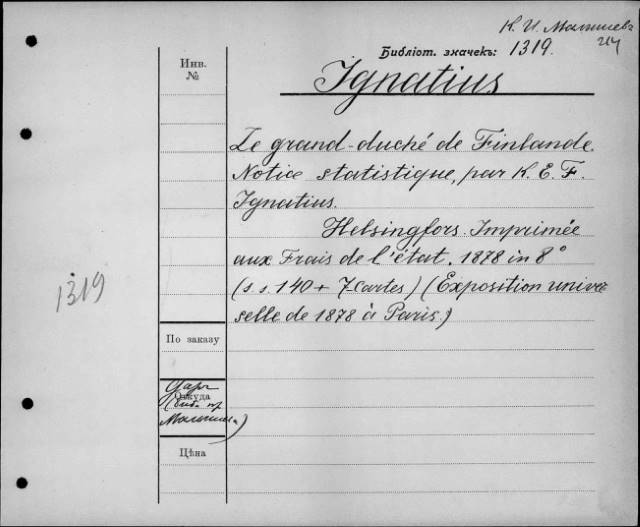 К. И. Малышевъ
214
Библіот. значекъ: 1319.
Инв.
№
Ignatius
Le grand-duché de Finlande.
Notice statistique, par K. E. F.
Ignatius.
Helsingfors. Imprimée
aux Frais de l'état. 1878 in 8°
(s. s. 140 + 7 Cartes) (Exposition unive
selle de 1878 à Paris.)
1319
По заказу
Откуда
Даръ
Малышева)
Цѣна